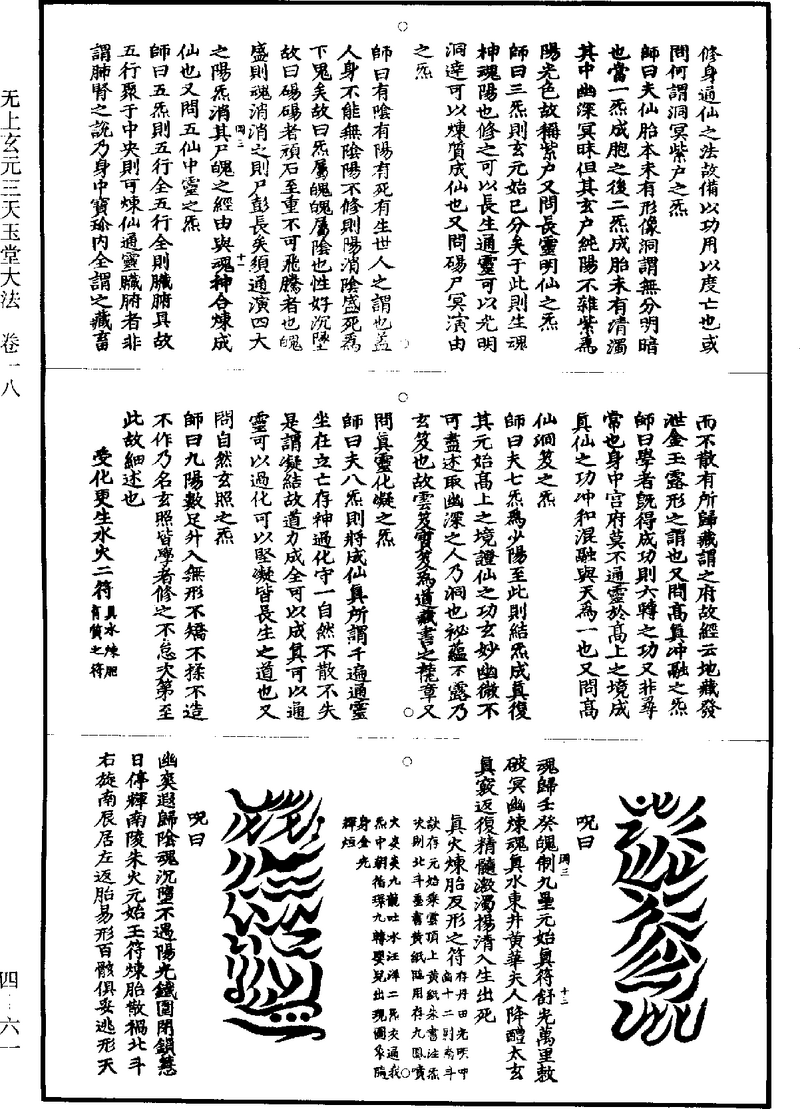 无上玄元三天玉堂大法　卷一八
四—六一
修身通仙之法故備以功用以度亡也或
問何謂洞冥紫戶之炁
師曰夫仙胎本未有形像洞謂無分明暗
也當一炁成胞之後二炁成胎未有清濁
其中幽深冥昧但其玄戶純陽不雜紫為
陽光色故稱紫戶又問長靈明仙之炁
師曰三炁則玄元始已分矣于此則生魂
神魂陽也修之可以長生通靈可以光明
洞達可以煉質成仙也又問碭尸冥演由
之炁
師曰有陰有陽有死有生世人之謂也蓋
人身不能無陰陽不修則陽消陰盛死為
下鬼矣故曰炁屬魄魄屬陰也性好沉墜
故曰碭碭者頑石至重不可飛騰者也魄
盛則魂消消之則尸彭長矣須通演四大
之陽炁消其尸魄之經由與魂神合煉成
仙也又問五仙中靈之炁
師曰五炁則五行全五行全則臟腑具故
五行聚于中央則可煉仙通靈臟腑者非
謂肺腎之說乃身中寶珍內全謂之藏畜
而不散有所歸藏謂之府故經云地藏發
泄金玉露形之謂也又問高真冲融之炁
師曰學者旣得成功則六轉之功又非尋
常也身中宮府莫不通靈於高上之境成
真仙之功冲和混融與天為一也又問高
仙洞笈之炁
師曰夫七炁為少陽至此則結炁成真復
其元始高上之境證仙之功玄妙幽微不
可盡述取幽深之人乃洞也祕蘊不露乃
玄笈也故雲笈寶笈為道藏書之龍章又
問真靈化凝之炁
師曰夫八炁則將成仙真所謂千遍通靈
坐在立亡存神過化守一自然不散不失
是謂凝結故道力成全可以成真可以通
靈可以過化可以堅凝皆長生之道也又
問自然玄照之炁
師曰九陽數足升入無形不矯不揉不造
不作乃名玄照皆學者修之不怠次第至
此故細述也
受化更生水火二符 真水煉胞
育質之符
呪曰
魂歸壬癸魄制九星元始真符舒光萬里敷
破冥幽煉魂真水東井黃華夫人降醴太玄
真竅返復精髓激濁揚清入生出死
真火煉胎反形之符 存丹田光明呼
訣存元始乘雲頂上黃紙朱書注炁
火炎炎九龍吐水汪洋二炁交遍我
炁中朝循環九轉嬰兒出現圓象腦
身金光
輝烜
呪曰
幽爽遐歸陰魂沉墮不遇陽光鐵圍閉鎖慧
日停輝南陵朱火元始玉符煉胎散禍北斗
右旋南辰居左返胎易形百骸俱妥逃形天